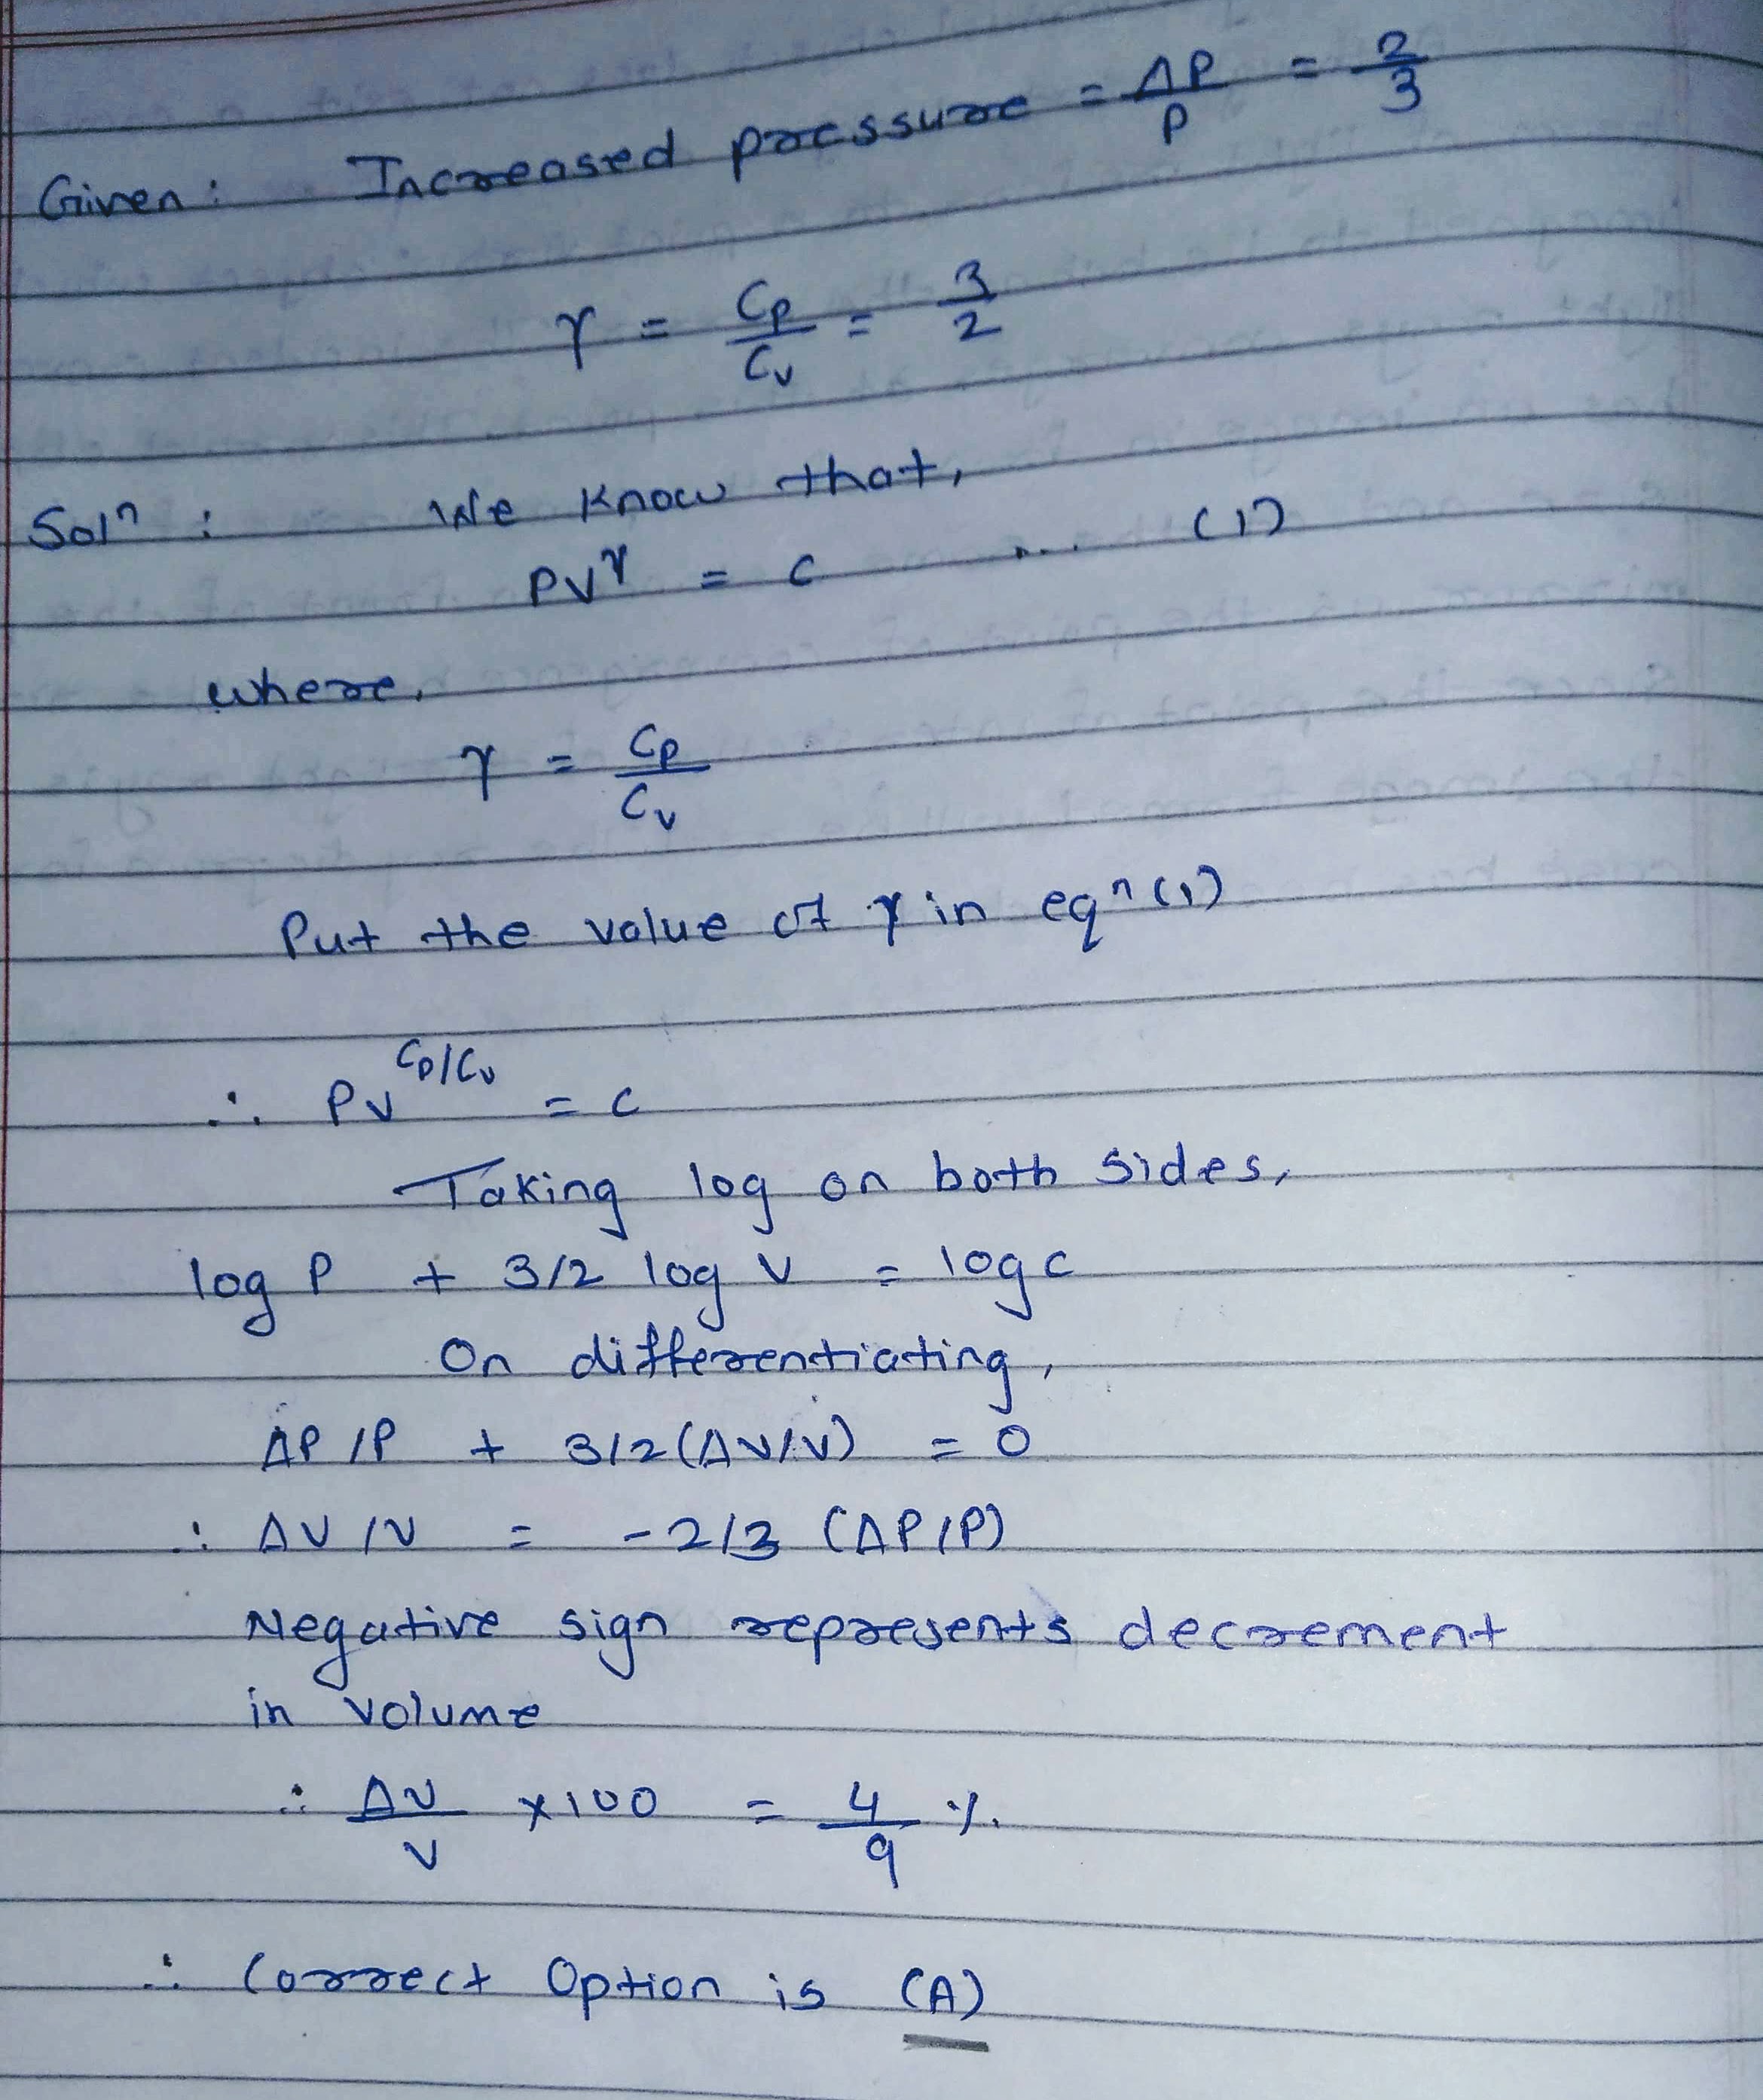 Given: Increased pressure = ΔP/P = 2/3
γ = Cp/Cv = 3/2
Solⁿ : We know that,
PV^γ = c ... (1)
where,
γ = Cp/Cv
Put the value of γ in eqⁿ (1)
∴ PV^Cp/Cv = c
Taking log on both sides,
log P + 3/2 log V = log c
On differentiating,
ΔP/P + 3/2(ΔV/V) = 0
∴ ΔV/V = -2/3 (ΔP/P)
Negative sign represents decrement
in volume
∴ ΔV/V ×100 = 4/9 %.
∴ Correct Option is (A)